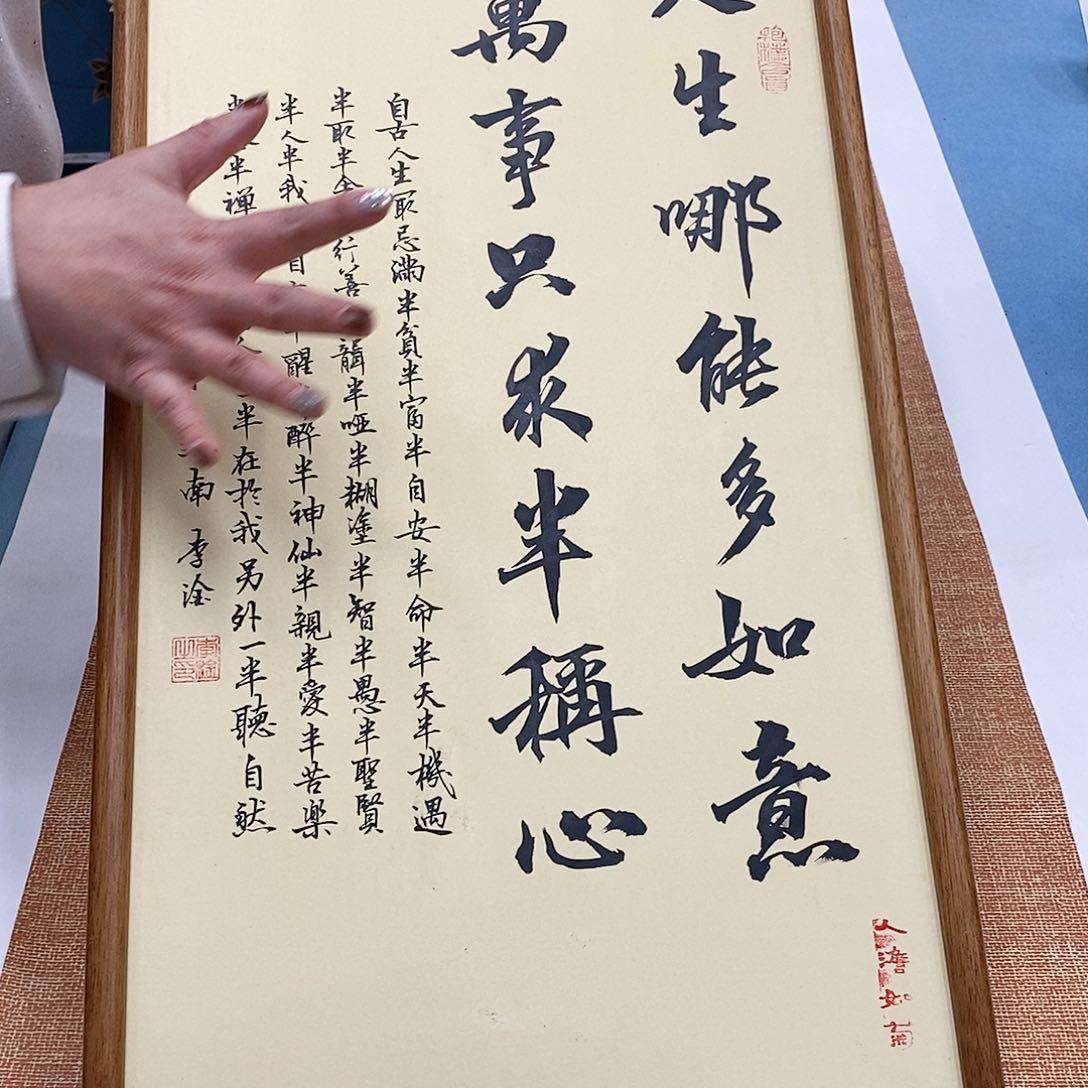 人生哪能多如意
萬事只求半稱心
自古人生最忌滿半貧半富半自安半命半天半機遇
半取半舍行善聾半啞半糊塗半智半愚半聖賢
半人半我自醒醉半神仙半親半愛半苦樂
半禪半在於我另外一半聽自然
南 李淦
李淦之印
人澹如菊